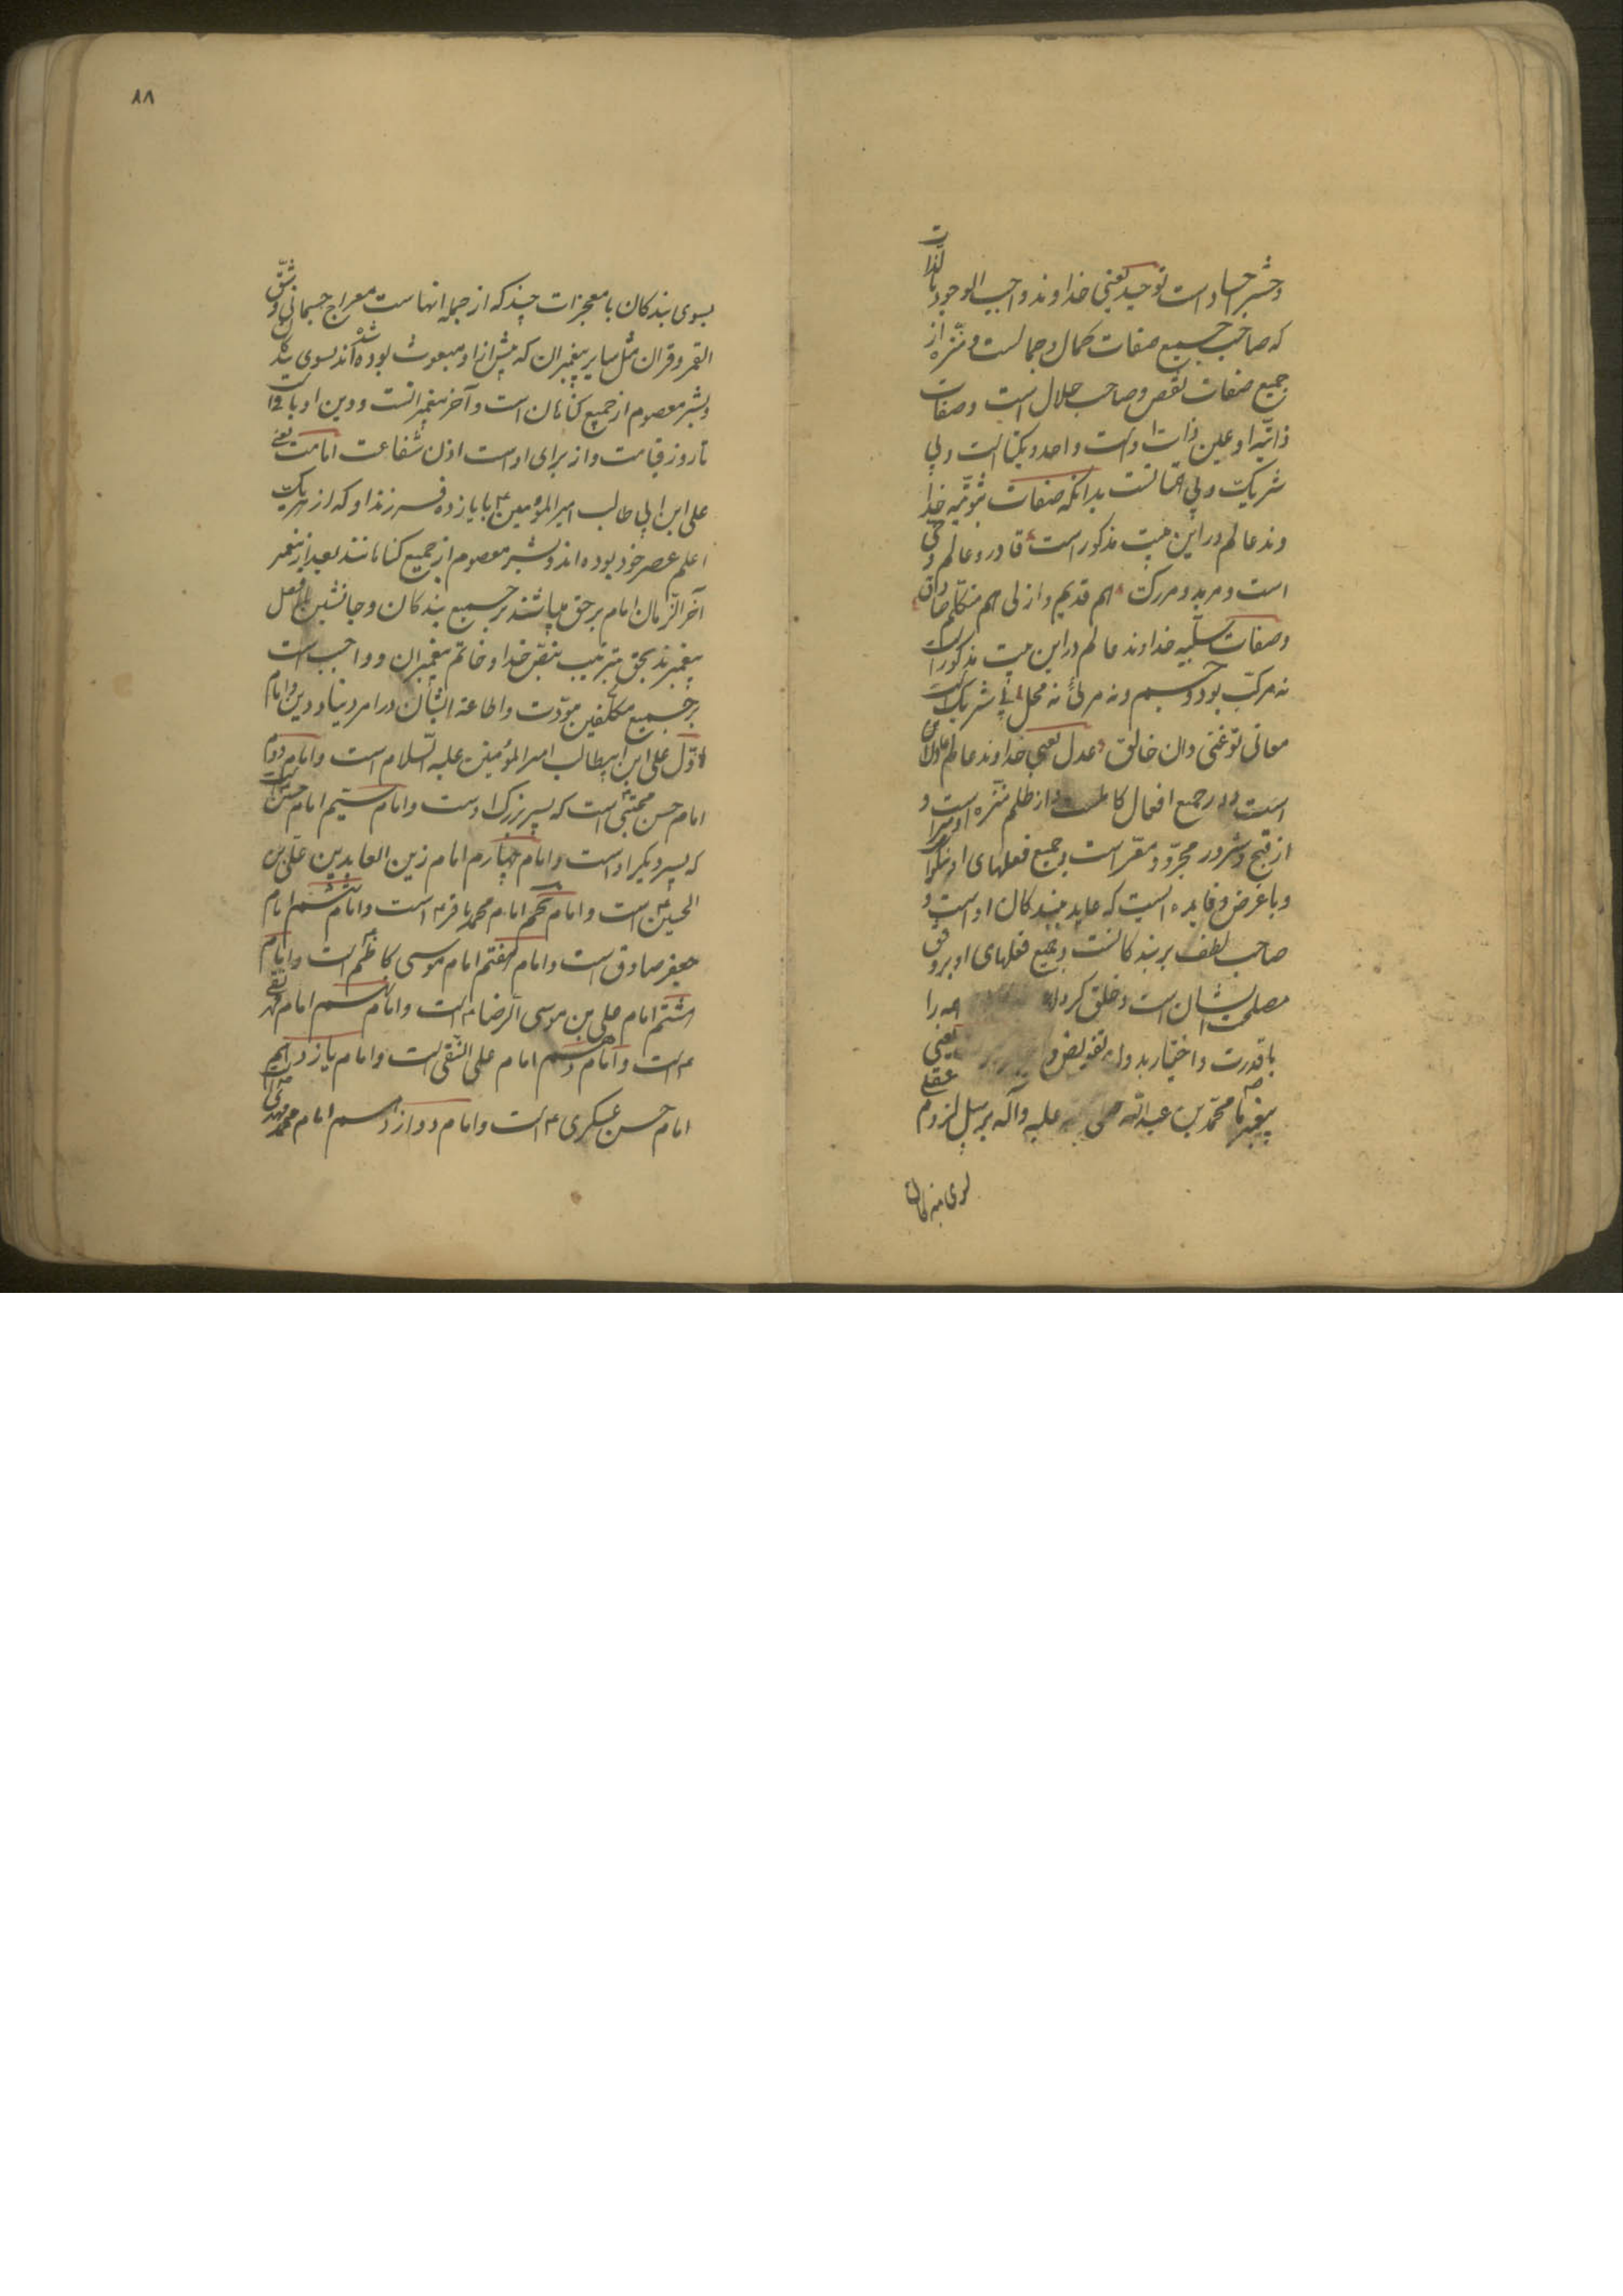 وحشر اجساد است توحید یعنی خداوند واجب الوجود بالذات
که صاحب جمیع صفات کمال و جمالست و منزه از
جمیع صفات نقص و صاحب جلال است و صفات
ذاتیه او عین ذات اوست واحد و یکتا است و بی
شریک و بی همتا است بدانکه صفات ثبوتیه خدا
وند عالم در این بیت مذکور است قادر و عالم و حی
است و مرید و مدرک هم قدیم و ازلی هم متکلم صادق
وصفات سلبیه خداوند عالم در این بیت مذکور است
نه مرکب بود و جسم و نه مرئی نه محل بی شریک است
معانی تو غنی دان خالق عدل یعنی خداوند عالم عادل
است در جمیع افعال از ظلم منزه است و
از قبح و شرور مجرد و مبرا است جمیع فعلهای او نیکو
و با غرض و فایده ایست که عاید بندکان اوست و
صاحب لطف بر بندکانست جمیع فعلهای او بر وفق
مصلحت ایشان است و خلق کرده همه را
با قدرت و اختیار بدون تفویض و یعنی
پیغمبر ما محمد بن عبدالله صلی علیه وآله بر سبیل لزوم عقلی
بسوی بندکان
۸۸
بسوی بندکان با معجزات چند که از جمله انهاست معراج جسمانی و شق
القمر و قران مثل سایر پیغمبران که پیش از او مبعوث شده بوده اند بسوی
وبشر معصوم از جمیع کناهان است و آخر پیغمبرانست و دین او باقی است
تا روز قیامت و از برای اوست اذن شفاعت امامت یعنی
علی ابن ابی طالب امیر المؤمنین ع با یازده فرزند او که از هر یک
اعلم عصر خود بوده اند و بشر معصوم از جمیع کناهانند بعد از پیغمبر
آخر الزمان امام بر حق میباشند بر جمیع بندکان و جانشین بلافصل
پیغمبرند بحق بترتیب بنص خدا و خاتم پیغمبران و واجب است
بر جمیع مکلفین مودت و اطاعة ایشان در امر دنیا و دین و امام
اول علی ابن ابیطالب امیر المؤمنین علیه السلام است و امام دوم
امام حسن مجتبی است که پسر بزرک اوست و امام سیم امام حسین است
که پسر دیکر اوست و امام چهارم امام زین العابدین علی بن
الحسین ع است و امام پنجم امام محمد باقر ع است و امام ششم امام
جعفر صادق است و امام هفتم امام موسی کاظم است و امام
هشتم امام علی بن موسی الرضا ع است و امام نهم امام محمد تقی
ع است و امام دهم امام علی النقی است و امام یازدهم
امام حسن عسکری ع است و امام دوازدهم امام محمد مهدی